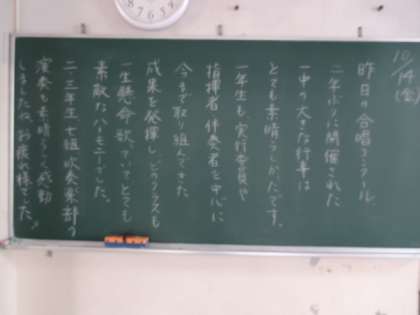 10/19(金)
昨日の合唱コンクール
二年ぶりに開催された
一中の大きな行事は
とても素晴らしかったです。
一年生も、実行委員や
指揮者、伴奏者を中心に
今まで取り組んできた
成果を発揮し、どのクラスも
一生懸命歌っていてとても
素敵なハーモニーでした。
二・三年生も七組吹奏楽部の
演奏も素晴らしく感動
しましたね。お疲れ様でした。